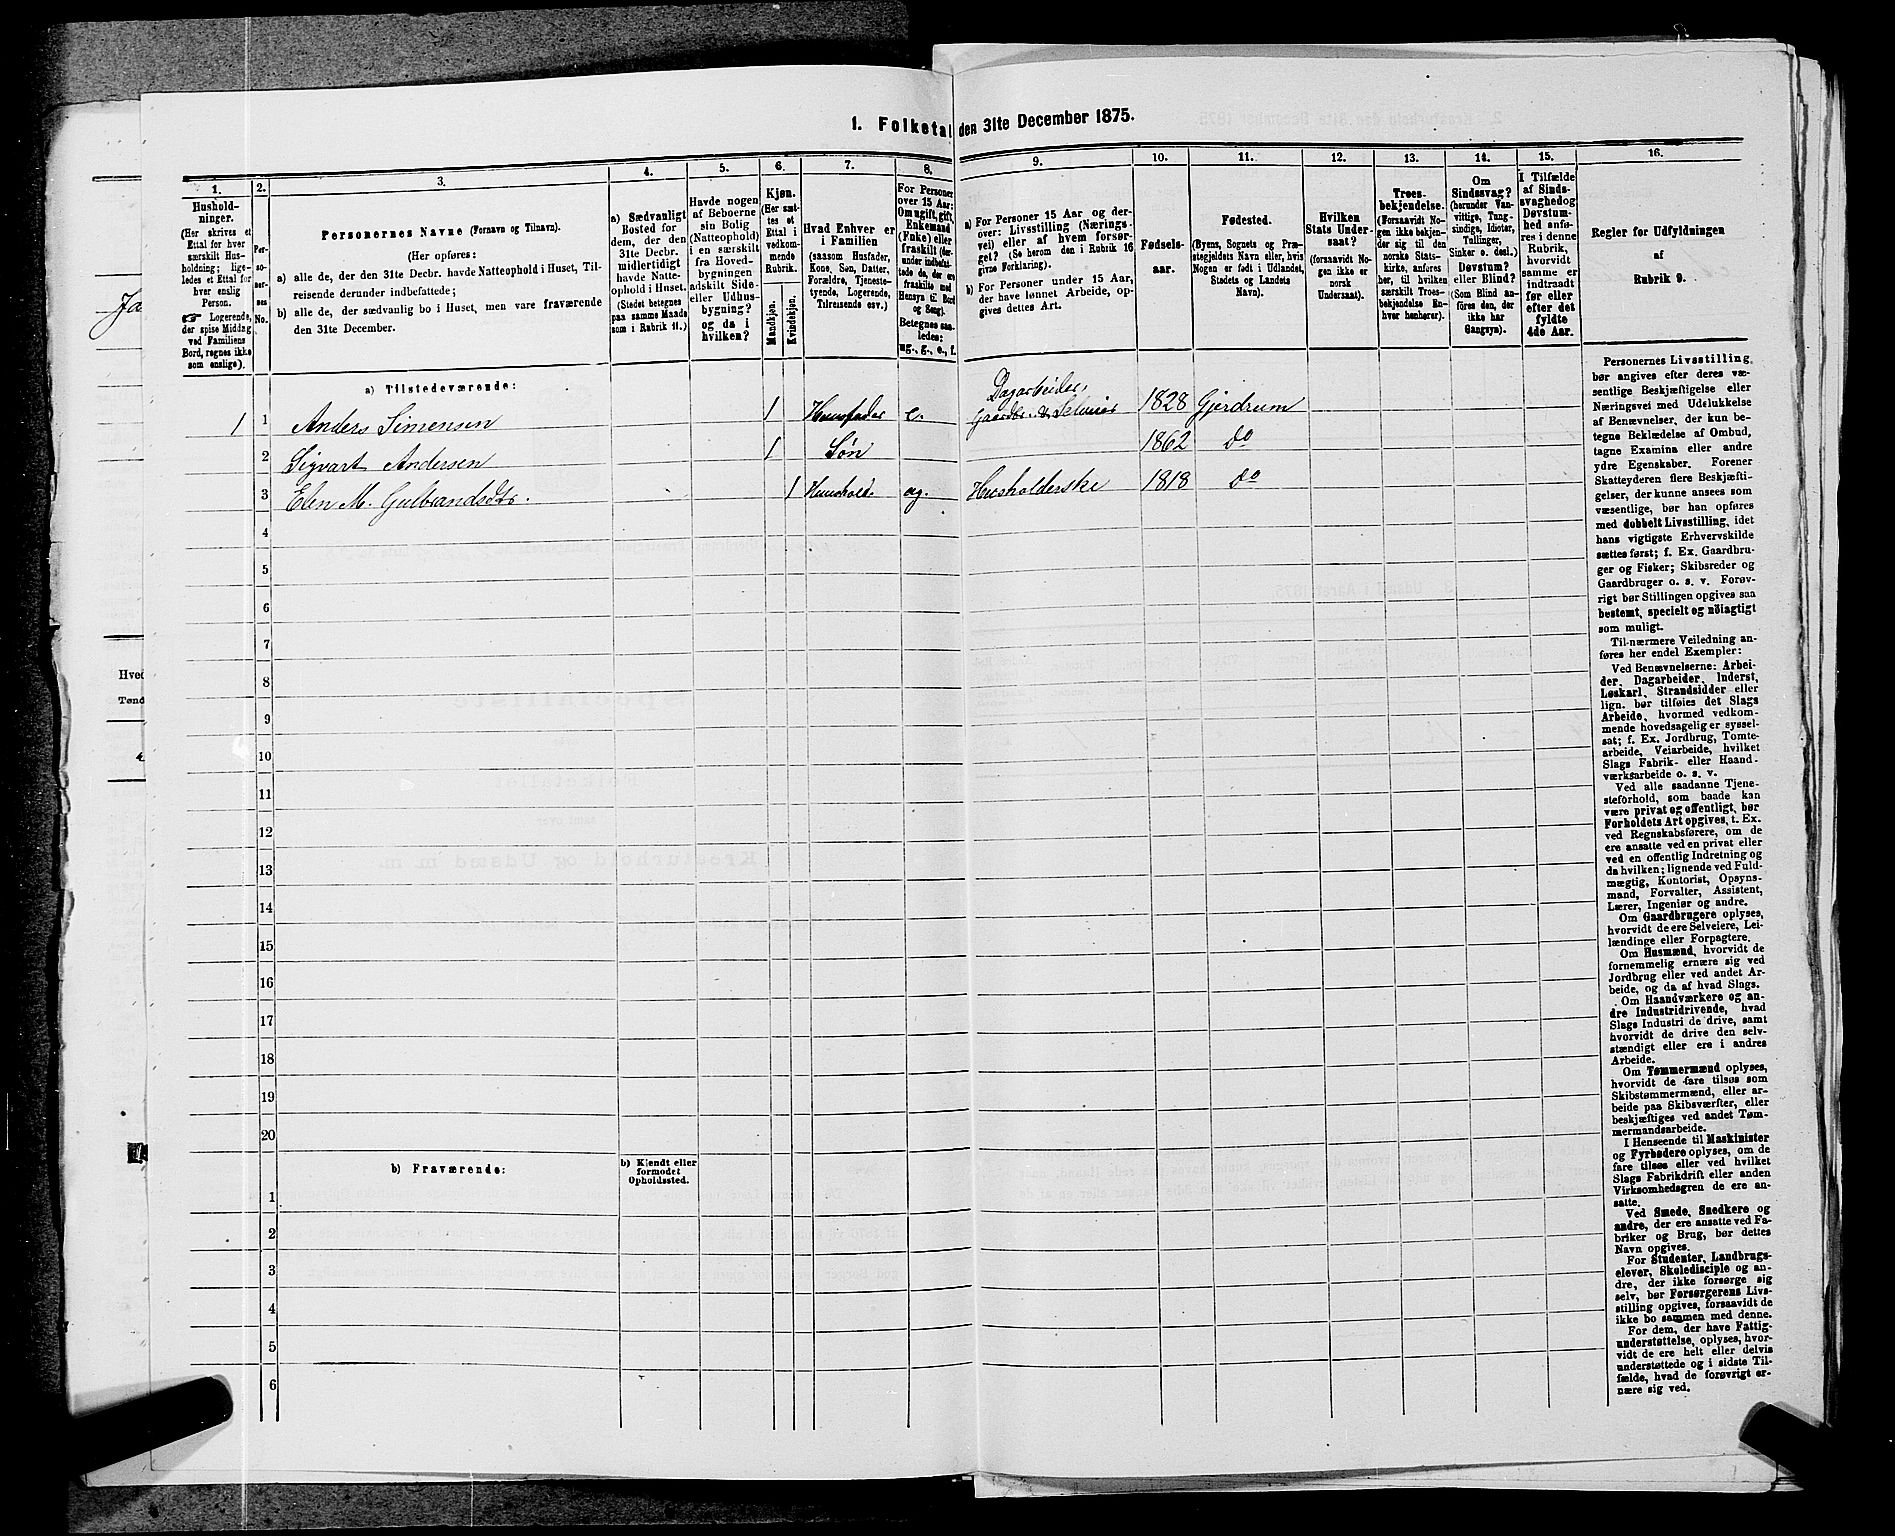 1. Folketal den 31te December 1875.
1.
2.
3.
4.
5.
6.
7.
8.
9.
10.
11.
12.
13.
14.
15.
16.
Hushold-
ninger.
(Her skrives et
Ettal for hver
særskilt Hus-
holdning; lige-
ledes et Ettal for
hver enslig
Person.
☞ Logerende,
der spise Middag
ved Familiens
Bord, regnes ikke
som enslige).
Per-
so-
ner-
nes
No.
Personernes Navne (Fornavn og Tilnavn).
(Her opføres:
a) alle de, der den 31te Decbr. havde Natteophold i Huset, Til-
reisende derunder indbefattede;
b) alle de, der sædvanlig bo i Huset, men vare fraværende
den 31te December.
a) Sædvanligt
Bosted for
dem, der den
31te Decbr.
midlertidigt
havde Natte-
ophold i Huset.
(Stedet betegnes
paa samme Maade
som i Rubrik 11.)
Havde nogen
af Beboerne
sin Bolig
(Natteophold)
i en særskilt
fra Hoved-
bygningen
adskilt Side-
eller Udhus-
bygning?
og da i
hvilken?
Kjøn.
(Her sæt-
tes et
Ettal i
vedkom-
mende
Rubrik.
Mandkjøn.
Kvindekjøn.
Hvad Enhver er
i Familien
(saasom Husfader,
Kone, Søn, Datter,
Forældre, Tjeneste-
tyende, Logerende,
Tilreisende osv.)
For Personer
over 15 Aar:
Om ugift, gift,
Enkemand
(Enke) eller
fraskilt (der-
under indbefat-
tede de, der ere
fraskilte med
Hensyn til Bord
og Seng).
Betegnes saa-
ledes:
ug., g., e., f.
a) For Personer 15 Aar og der-
over: Livsstilling (Nærings-
vei) eller af hvem forsør-
get? (Se herom den i Rubrik 16
givne Forklaring).
b) For Personer under 15 Aar,
der have lønnet Arbeide, op-
gives dettes Art.
Fødsels-
aar.
Fødested.
(Byens, Sognets og Præ-
stegjeldets Navn eller, hvis
Nogen er født i Udlandet,
Stedets og Landets
Navn).
Hvilken
Stats Under-
saat?
(forsaavidt No-
gen ikke er
norsk
Undersaat).
Troes-
bekjendelse.
(Forsaavidt No-
gen ikke bekjen-
der sig til den
norske Stats-
kirke, anføres
her, til hvilken
særskilt Troes-
bekjendelse En-
hver henhører).
Om
Sindssvag?
(herunder Van-
vittige, Tung-
sindige, Idioter,
Tullinger,
Sinker o. desl.)
Døvstum?
eller Blind?
(Som Blind an-
føres den, der
ikke har
Gangsyn).
I Tilfælde
af Sinds-
svaghed og
Døvstum-
hed anfø-
res i denne
Rubrik,
hvorvidt
samme er
indtraadt
før eller
efter det
fyldte
4de Aar.
Regler for Udfyldningen
af
Rubrik 9.
a) Tilstedeværende:
Dagarbeider,
1 1 Anders Simensen 1 Huusfader e. Gaardbr. & Selveier 1828 Gjerdrum
2 Sigvart Andersen 1 Søn 1862 Do
3 Elen M. Gulbrandsdtr. 1 Huushold. ug. Husholderske 1818 Do
4
5
6
7
8
9
10
11
12
13
14
15
16
17
18
19
20
b) Fraværende:
b) Kjendt eller
formodet
Opholdssted.
1
2
3
4
5
6
Personernes Livsstilling
bør angives efter deres væ-
sentlige Beskjæftigelse eller
Næringsvei med Udelukkelse
af Benævnelser, der kun be-
tegne Beklædelse af Ombud,
tagne Examina eller andre
ydre Egenskaber. Forener
Skatteyderen flere Beskjæfti-
gelser, der kunne ansees som
væsentlige, bør han opføres
med dobbelt Livsstilling, idet
hans vigtigste Erhvervskilde
sættes først; f. Ex. Gaardbru-
ger og Fisker; Skibsreder og
Gaardbruger o. s. v. Forøv-
rigt bør Stillingen opgives saa
bestemt, specielt og nøiagtigt
som muligt.
Til nærmere Veiledning an-
føres her endel Exempler:
Ved Benævnelserne: Arbei-
der, Dagarbeider, Inderst,
Løskarl, Strandsidder eller
lign. bør tilføies det Slags
Arbeide, hvormed vedkom-
mende hovedsagelig er syssel-
sat; f. Ex. Jordbrug, Tomte-
arbeide, Veiarbeide, hvilket
Slags Fabrik- eller Haand-
værksarbeide o. s. v.
Ved alle saadanne Tjene-
steforhold, som baade kan
være privat og offentligt, bør
Forholdets Art opgives, t. Ex.
ved Regnskabsførere, om de
ere ansatte ved en privat eller
ved en offentlig Indretning og
da hvilken; lignende ved Fuld-
mægtig, Kontorist, Opsyns-
mand, Forvalter, Assistent,
Lærer, Ingeniør og andre.
Om Gaardbrugere oplyses,
hvorvidt de ere Selveiere, Lei-
lændinge eller Forpagtere.
Om Husmænd, hvorvidt de
fornemmelig ernære sig ved
Jordbrug eller ved andet Ar-
beide, og da af hvad Slags.
Om Haandværkere og an-
dre Industridrivende, hvad
Slags Industri de drive, samt
hvorvidt de drive den selv-
stændigt eller ere i andres
Arbeide.
Om Tømmermænd oplyses,
hvorvidt de fare tilsøs som
Skibstømmermænd, eller ar-
beide paa Skibsværfter, eller
beskjæftiges ved andet Tøm-
mermandsarbeide.
I Henseende til Maskinister
og Fyrbødere oplyses, om de
fare tilsøs eller ved hvilket
Slags Fabrikdrift eller anden
Virksomhedsgren de ere an-
satte.
Ved Smede, Snedkere og
andre, der ere ansatte ved Fa-
briker og Brug, bør dettes
Navn opgives.
For Studenter, Landbrugs-
elever, Skoledisciple og an-
dre, der ikke forsørge sig
selv, bør Forsørgerens Livs-
stilling opgives, forsaavidt de
ikke bo sammen med denne.
For dem, der have Fattig-
understøttelse, oplyses, hvor-
vidt de ere helt eller delvis
understøttede og i sidste Til-
fælde, hvad de forøvrigt er-
nære sig ved.